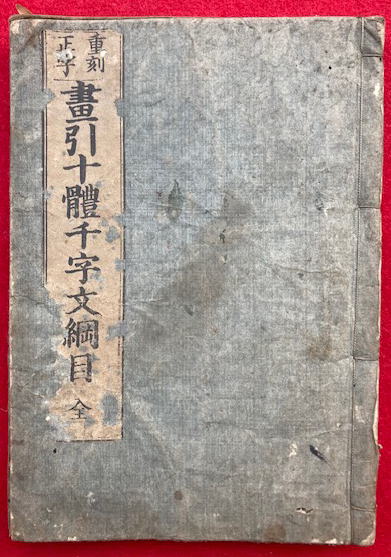 重刻
正字
畫引十體千字文綱目
全